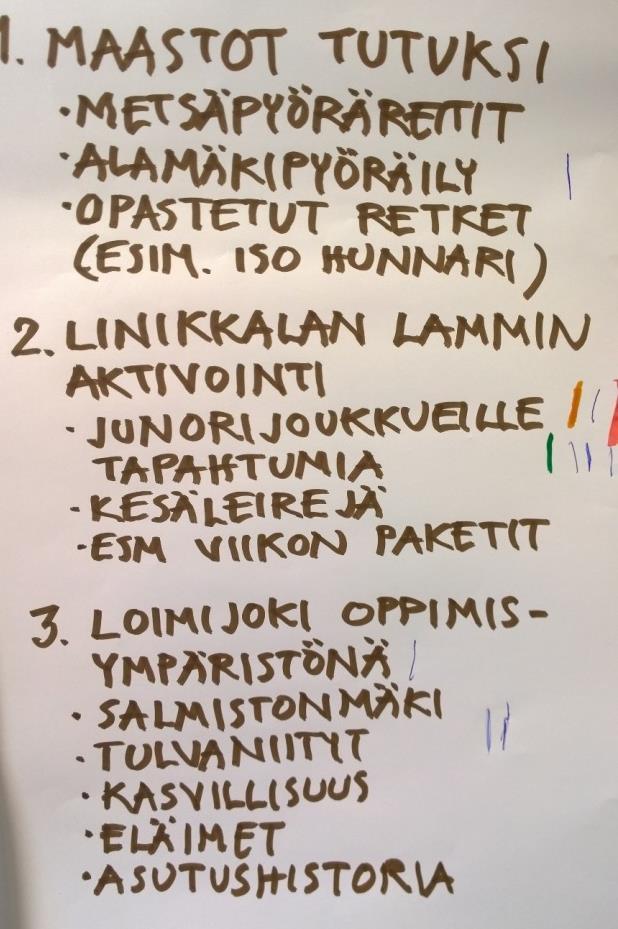 1. MAASTOT TUTUKSI
·METSÄPYÖRÄREITIT
·ALAMÄKIPYÖRÄILY
·OPASTETUT RETKET
(ESIM. ISO HUNNARI)
2. LINIKKALAN LAMMIN
AKTIVOINTI
·JUNORIJOUKKUEILLE
TAPAHTUMIA
·KESÄLEIREJÄ
·ESM VIIKON PAKETIT
3. LOIMIJOKI OPPIMIS-
YMPÄRISTÖNÄ
·SALMISTONMÄKI
·TULVANIITYT
·KASVILLISUUS
·ELÄIMET
·ASUTUSHISTORIA